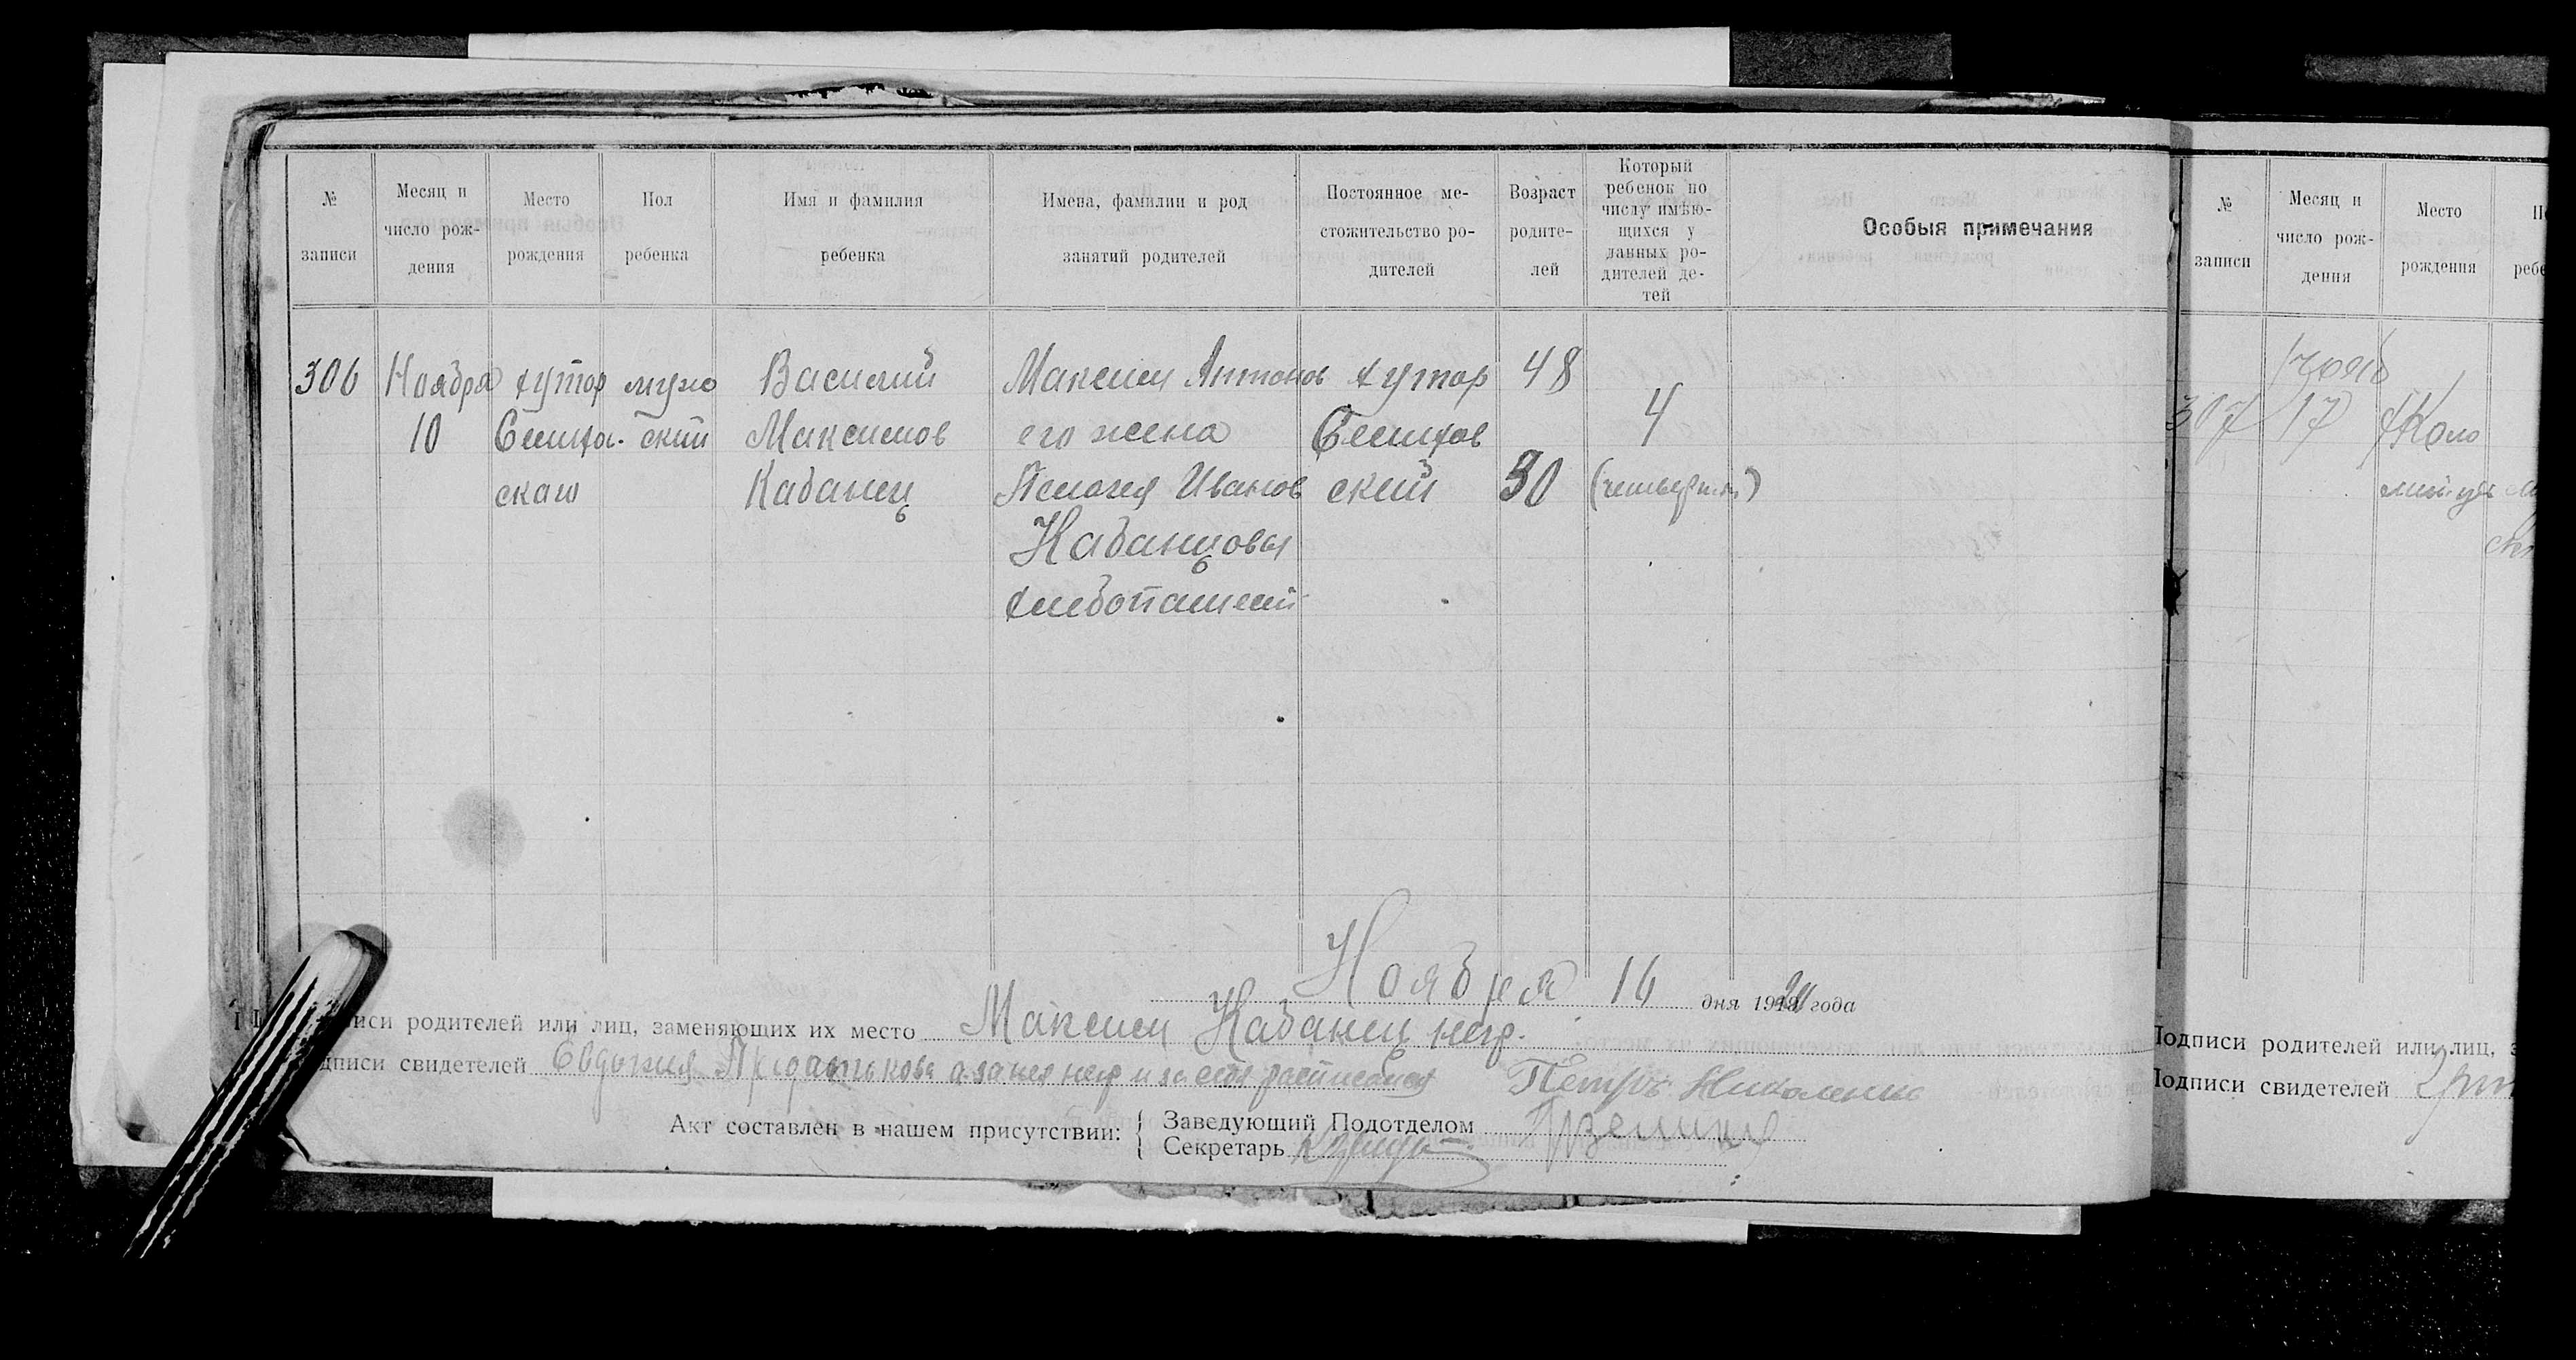 № записи
Месяц и число рождения
Место рождения
Пол ребенка
Имя и фамилия ребенка
Имена, фамилии и род занятий родителей
Постоянное местожительство родителей
Возраст родителей
Который ребенок по числу имѣющихся у данных родителей детей
Особыя примечания
306 Ноября хутор муже Василий Максим Антонов хутор 48
10 Семихо- ский Максимов его жена Семихов 4
скаш Кабанец Пелагея Иванов ский 30 (четвертый)
Кабанцовы
хлебопашест
Ноября 16 дня 19 года
писи родителей или лиц, заменяющих их место Максим Кабанец негр.
дписи свидетелей Евдокия а за нея негр и за себя расписался Петръ Николенко
Акт составлен в нашем присутствии:
Заведующий Подотделом
Секретарь
№ записи
Месяц и число рождения
Место рождения
П
ребе
Нояб
307 17 х Коло
мийцев
Подписи родителей или лиц, з
Подписи свидетелей